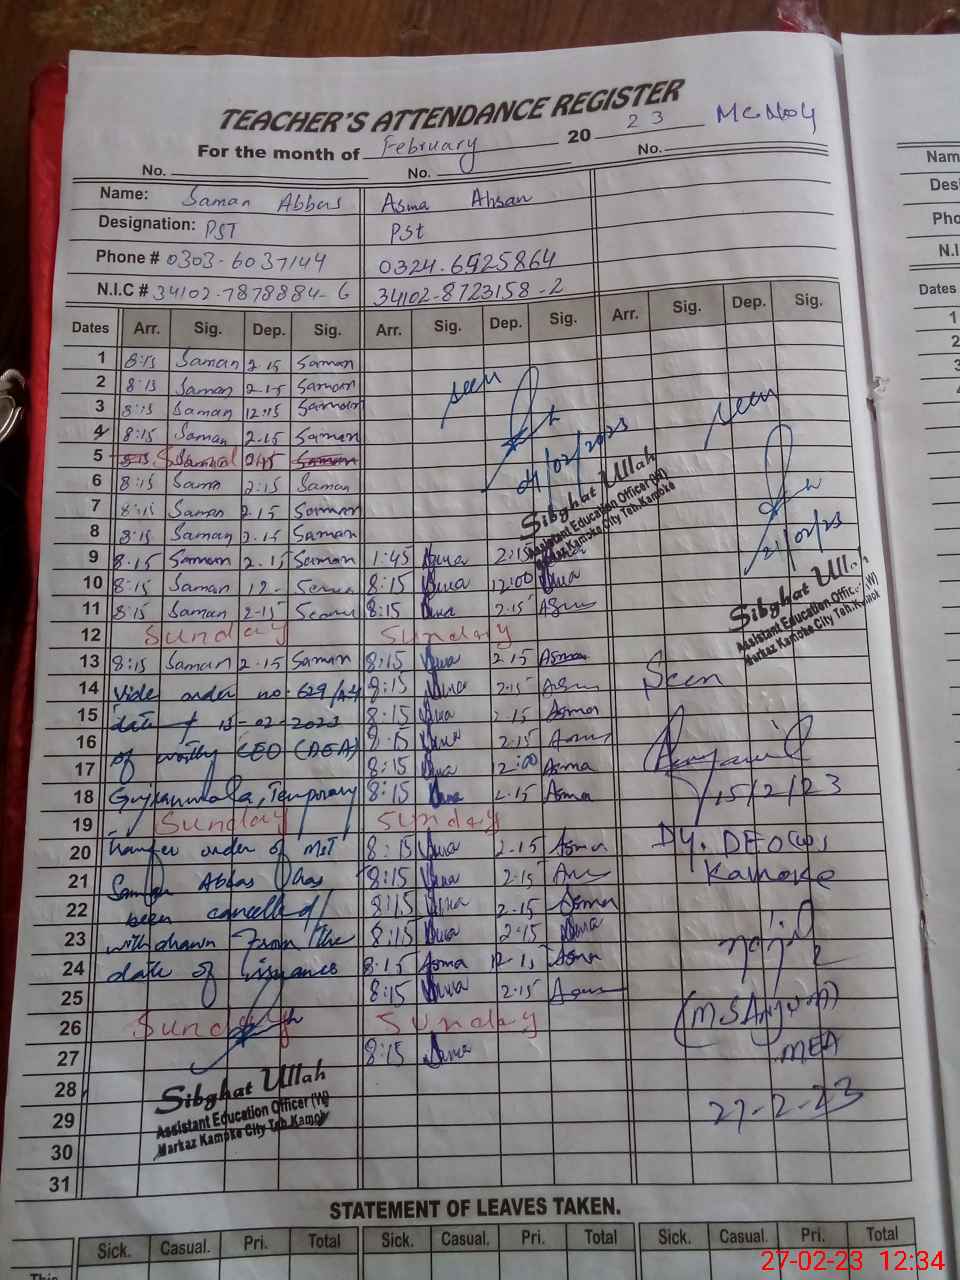 TEACHER'S ATTENDANCE REGISTER
For the month of February 20 23 MC No 4
No. No. No.
Name: Saman Abbas Asma Ahsan
Designation: PST PSt
Phone # 0303-6037144 0324-6925864
N.I.C # 34102-7878884-6 34102-8723158-2
Dates Arr. Sig. Dep. Sig. Arr. Sig. Dep. Sig. Arr. Sig. Dep. Sig.
1 8:15 Saman 2.15 Saman
2 8:15 Saman 2.15 Saman
3 8:15 Saman 12:15 Saman
4 8:15 Saman 2.15 Saman
5 8:15 2:15 Saman
6 8:15 Saman 2:15 Saman
7 8:15 Saman 2.15 Saman
8 8:15 Saman 2.15 Saman
9 8.15 Saman 2.15 Saman 1:45 2:15
10 8:15 Saman 12- 8:15 12:00
11 8:15 Saman 2-15 8:15 2.15
12 Sunday Sunday
13 8:15 Saman 2.15 Saman 8:15 2.15 Asma
14 Vide order no. 629 8:15 2.15
15 dated 13-02-2023 8.15 2.15 Asma
16 of worthy CEO (DEA) 8.15 2.15
17 8:15 12:00 Asma
18 Gujranwala, Temporary 8:15 2.15 Asma
19 Sunday Sunday
20 order of Mst 8:15 2.15 Asma
21 Saman Abbas has 8:15 2.15
22 been cancelled/ 8:15 2.15 Asma
23 withdrawn from the 8:15 2.15
24 date of issuance 8.15 Asma 12.15 Asma
25 8:15 2.15
26 Sunday Sunday
27 8:15
28
29
30
31
seen
04/02/2023
Sibghat Ullah
Assistant Education Officer (W)
Markaz Kamoke City Teh. Kamoke
seen
21/02/23
Sibghat Ullah
Assistant Education Officer (W)
Markaz Kamoke City Teh. Kamoke
Seen
15/2/23
Dy. DEO(W)
Kamoke
(M S Anjum)
MEA
27-2-23
Sibghat Ullah
Assistant Education Officer (W)
Markaz Kamoke City Teh. Kamoke
STATEMENT OF LEAVES TAKEN.
Sick. Casual. Pri. Total Sick. Casual. Pri. Total Sick. Casual. Pri. Total
This
Nam
Des
Pho
N.I
Dates
1
2
3
27-02-23 12:34